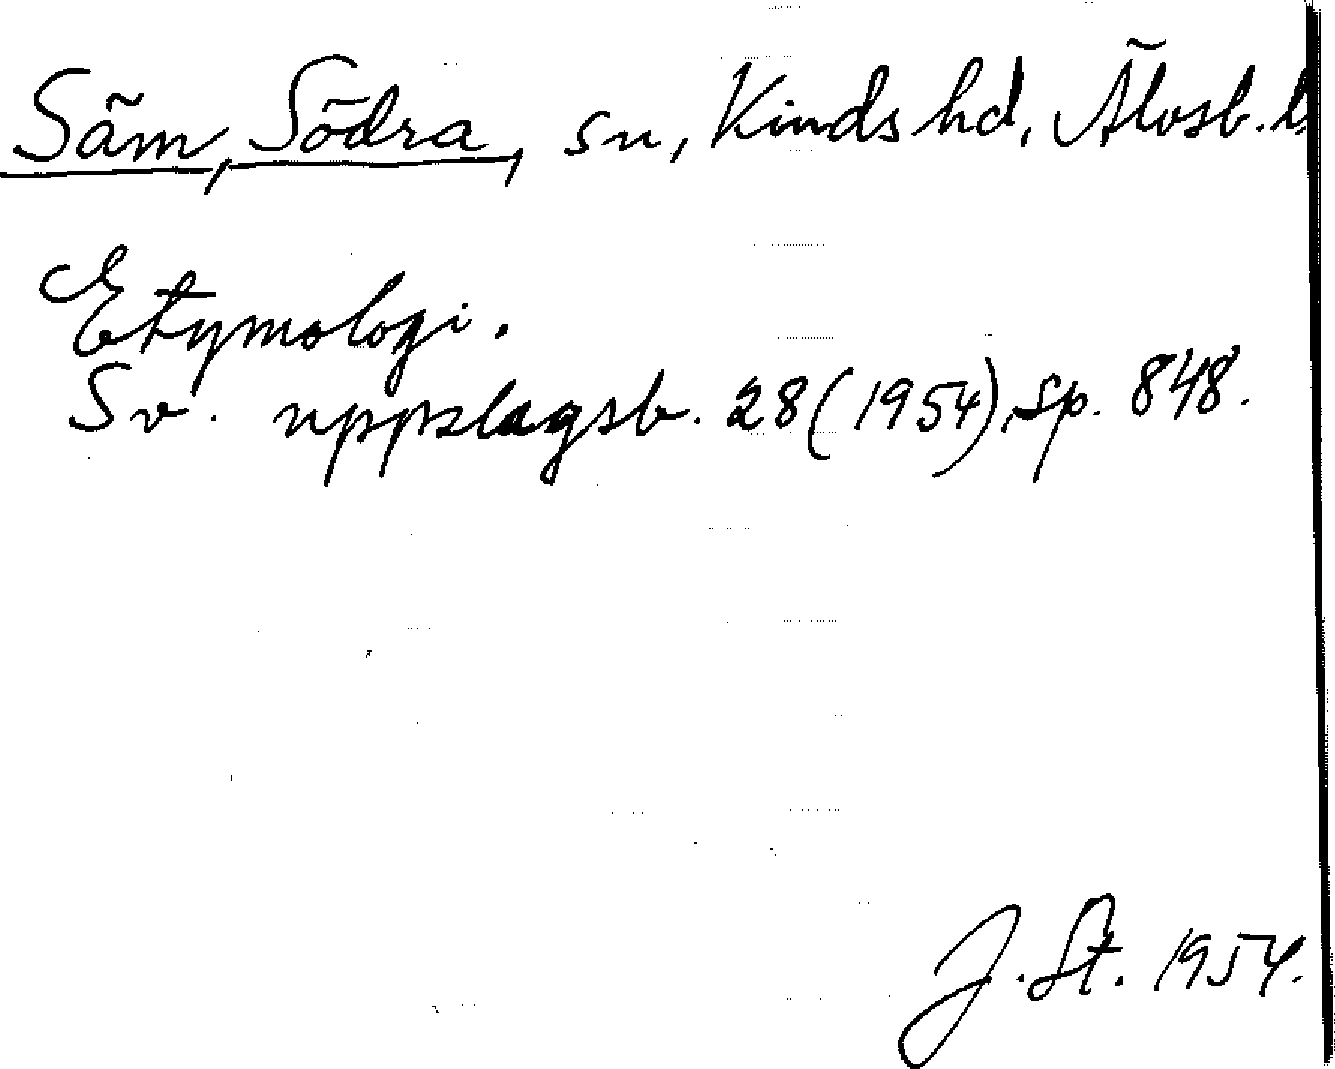 Säm, Södra, sn, Kinds hd, Älvsb. l
Etymologi.
Sv. uppslagsb. 28 (1954) sp. 848.
J. St. 1954.